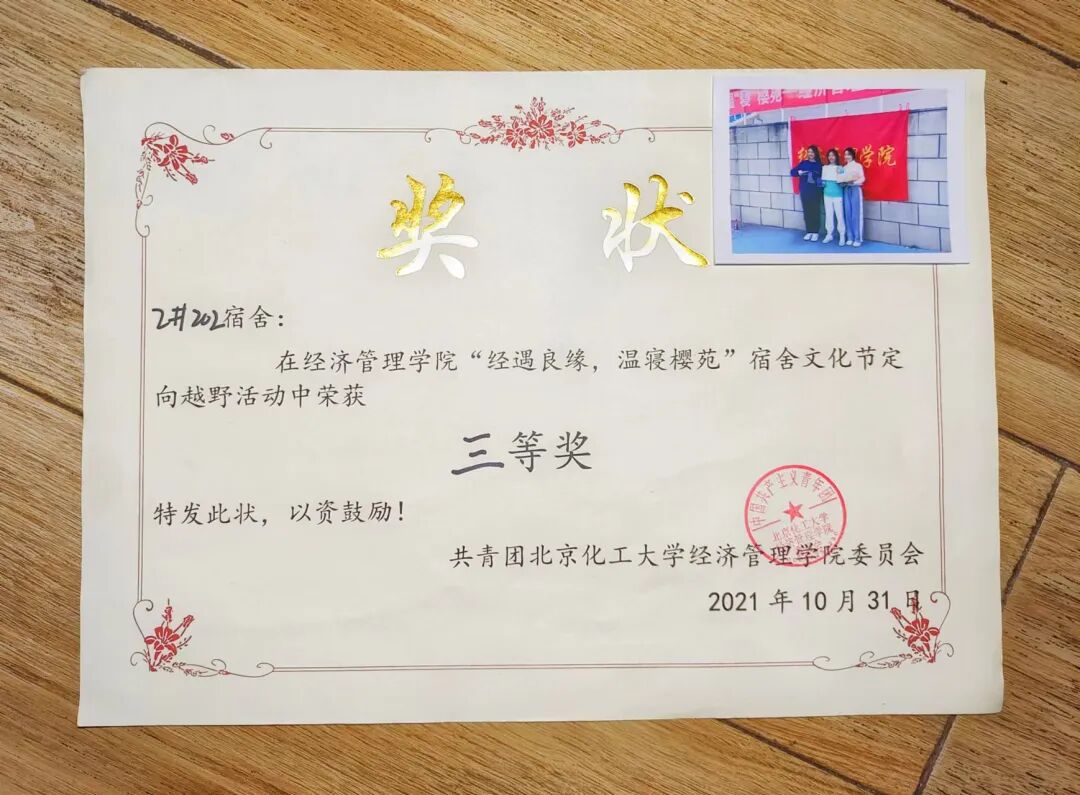 奖 状
2#202宿舍：
在经济管理学院“经遇良缘，温寝樱苑”宿舍文化节定
向越野活动中荣获
三等奖
特发此状，以资鼓励！
中国共产主义青年团
北京化工大学
经济管理学院
共青团北京化工大学经济管理学院委员会
2021 年 10 月 31 日
学院